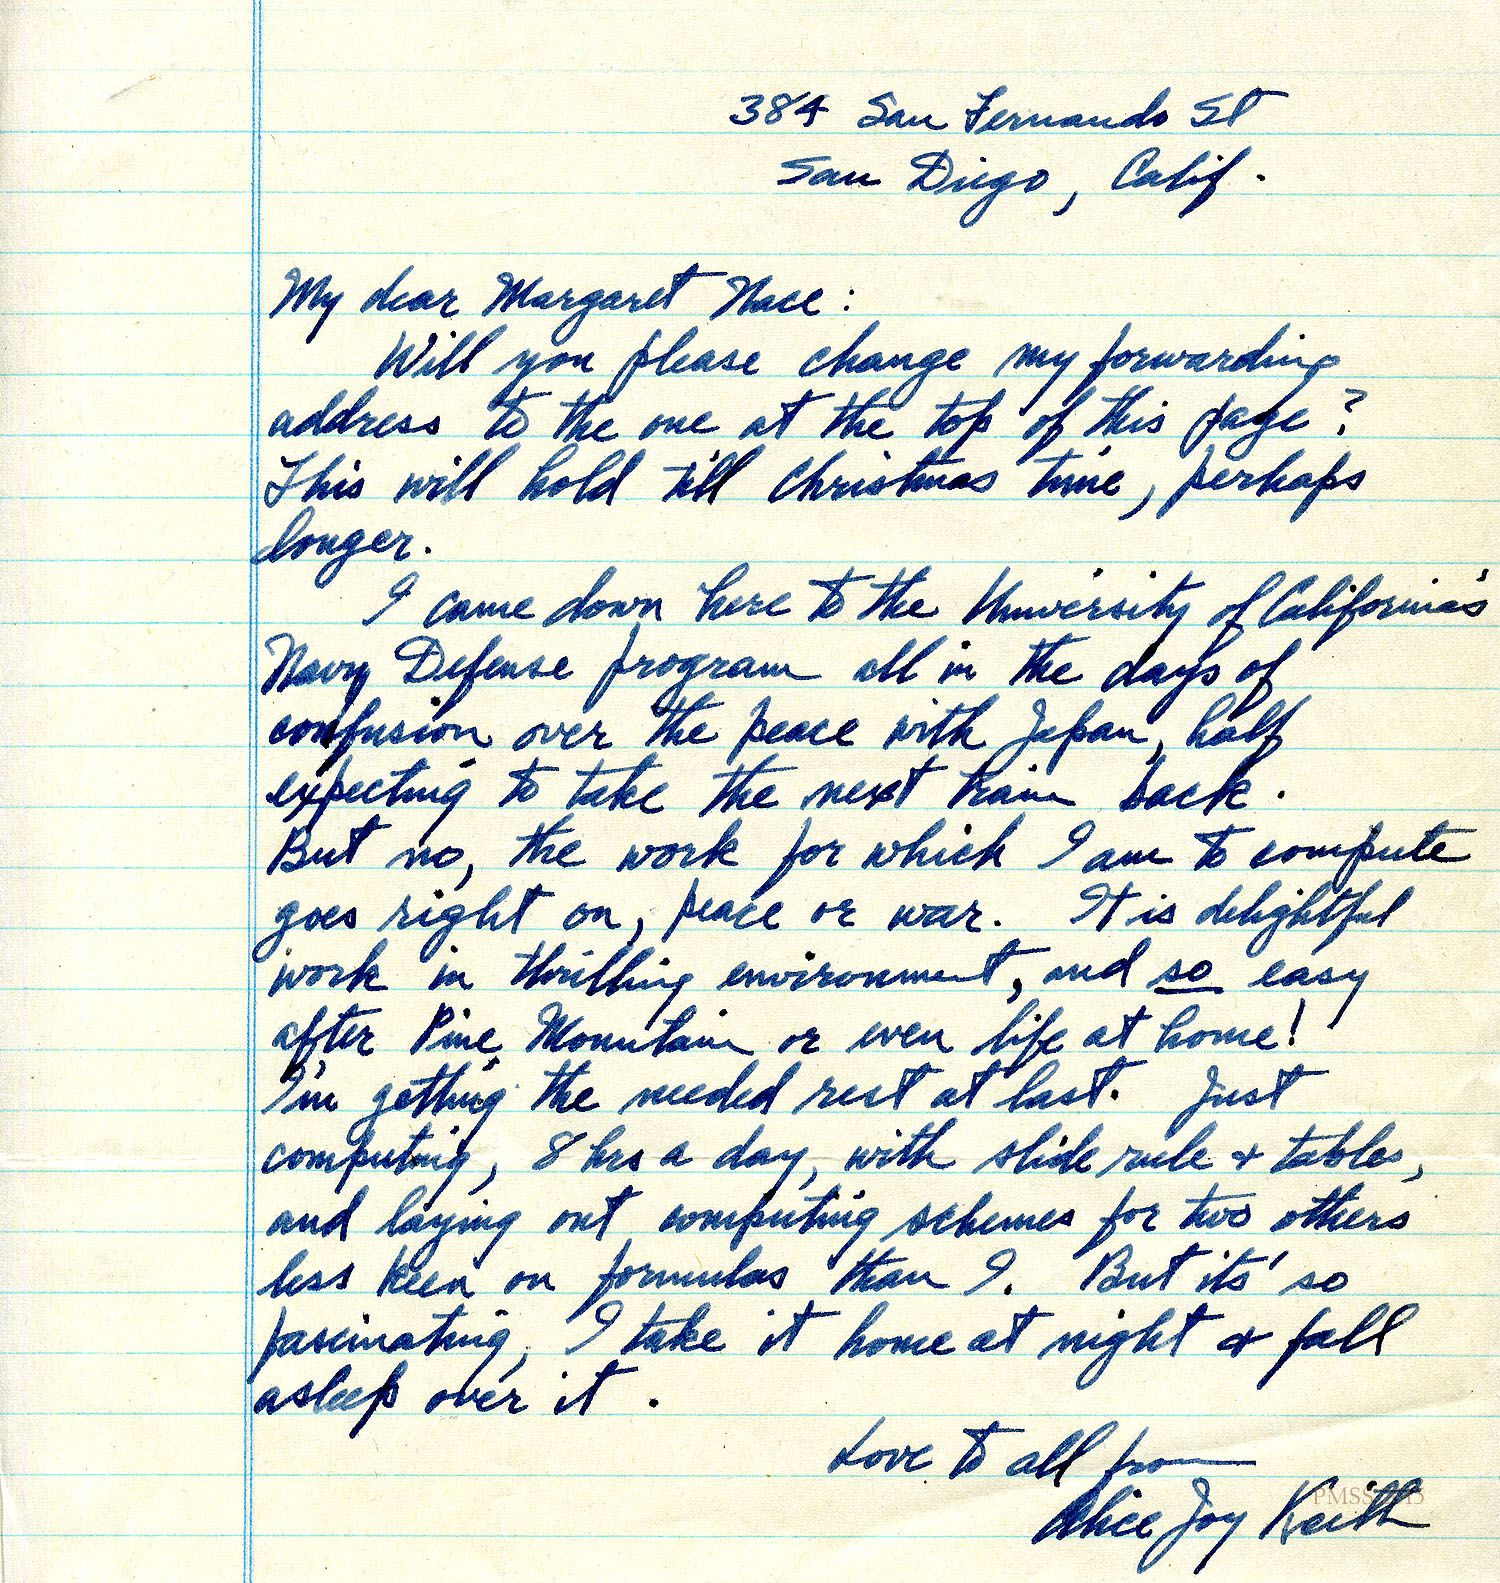 384 San Fernando St
San Diego, Calif.
My dear Margaret Nace:
Will you please change my forwarding
address to the one at the top of this page?
This will hold till Christmas time, perhaps
longer.
I came down here to the University of California's
Navy Defense program all in the days of
confusion over the peace with Japan, half
expecting to take the next train back.
But no, the work for which I am to compute
goes right on, peace or war. It is delightful
work in thrilling environment, and so easy
after Pine Mountain or even life at home!
I'm getting the needed rest at last. Just
computing, 8 hrs a day, with slide rule & tables,
and laying out computing schemes for two others
less keen on formulas than I. But its' so
fascinating, I take it home at night & fall
asleep over it.
Love to all from
Alice Joy Keith